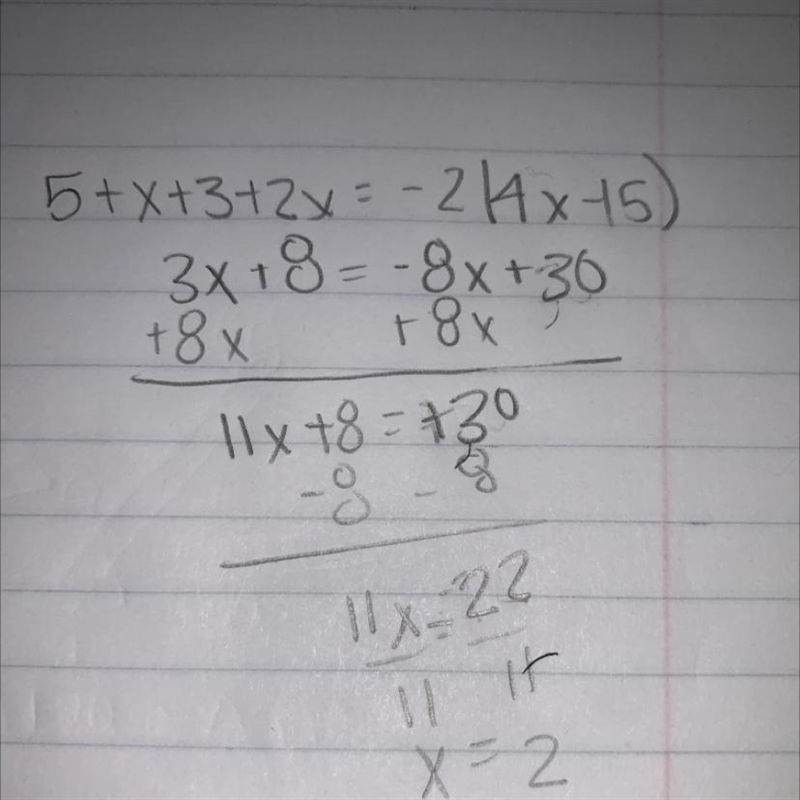 5+x+3+2x = -2(4x-15)
3x+8 = -8x+30
+8x +8x
11x+8 = +30
-8 - 8
11x = 22
11 11
x = 2